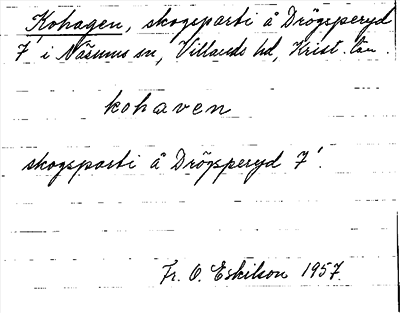 Kohagen, skogsparti å Drögsperyd
7¹ i Näsums sn, Villands hd, Krist. län.
kohaven
skogsparti å Drögsperyd 7¹.
Fr. O. Eskilson 1957.